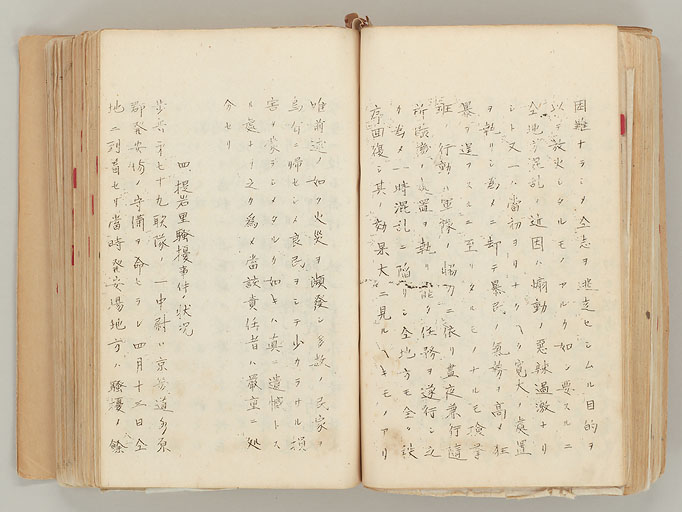 困難ナラシメ全志ヲ逃走セシムル目的ヲ
以テ放火シタルモノアルカ如シ要スルニ
全地方混乱ノ近因ハ煽動ノ悪辣過激ナリ
シト又一ハ当初ヨリナルヘク寛大ノ處置
ヲ執リシ為メニ却テ暴民ノ氣勢ヲ高メ狂
暴ヲ逞フスルニ至リタルモノナルモ検挙
班ノ行動ハ軍隊ノ協力ニ依リ昼夜兼行随
所ニ機宜ノ處置ヲ執リ能ク任務ヲ遂行シ之
カ為メ一時混乱ニ陥リシ全地方モ全ク秩
序回復シ其ノ効果大ニ見ルヘキモノアリ
唯前述ノ如ク火災ヲ頻発シ多数ノ民家ヲ
烏有ニ帰セシメ良民ヲシテ少カラサル損
害ヲ蒙ラシメタルカ如キハ真ニ遺憾トス
ル處ナリ之カ為メ当該責任者ハ厳重ニ処
分セリ
四、提岩里騒擾事件ノ状況
歩兵第七十九聯隊ノ一中尉ハ京畿道水原
郡発安場ノ守備ヲ命セラレ四月十三日全
地ニ到着セリ当時発安場地方ハ騒擾ノ餘